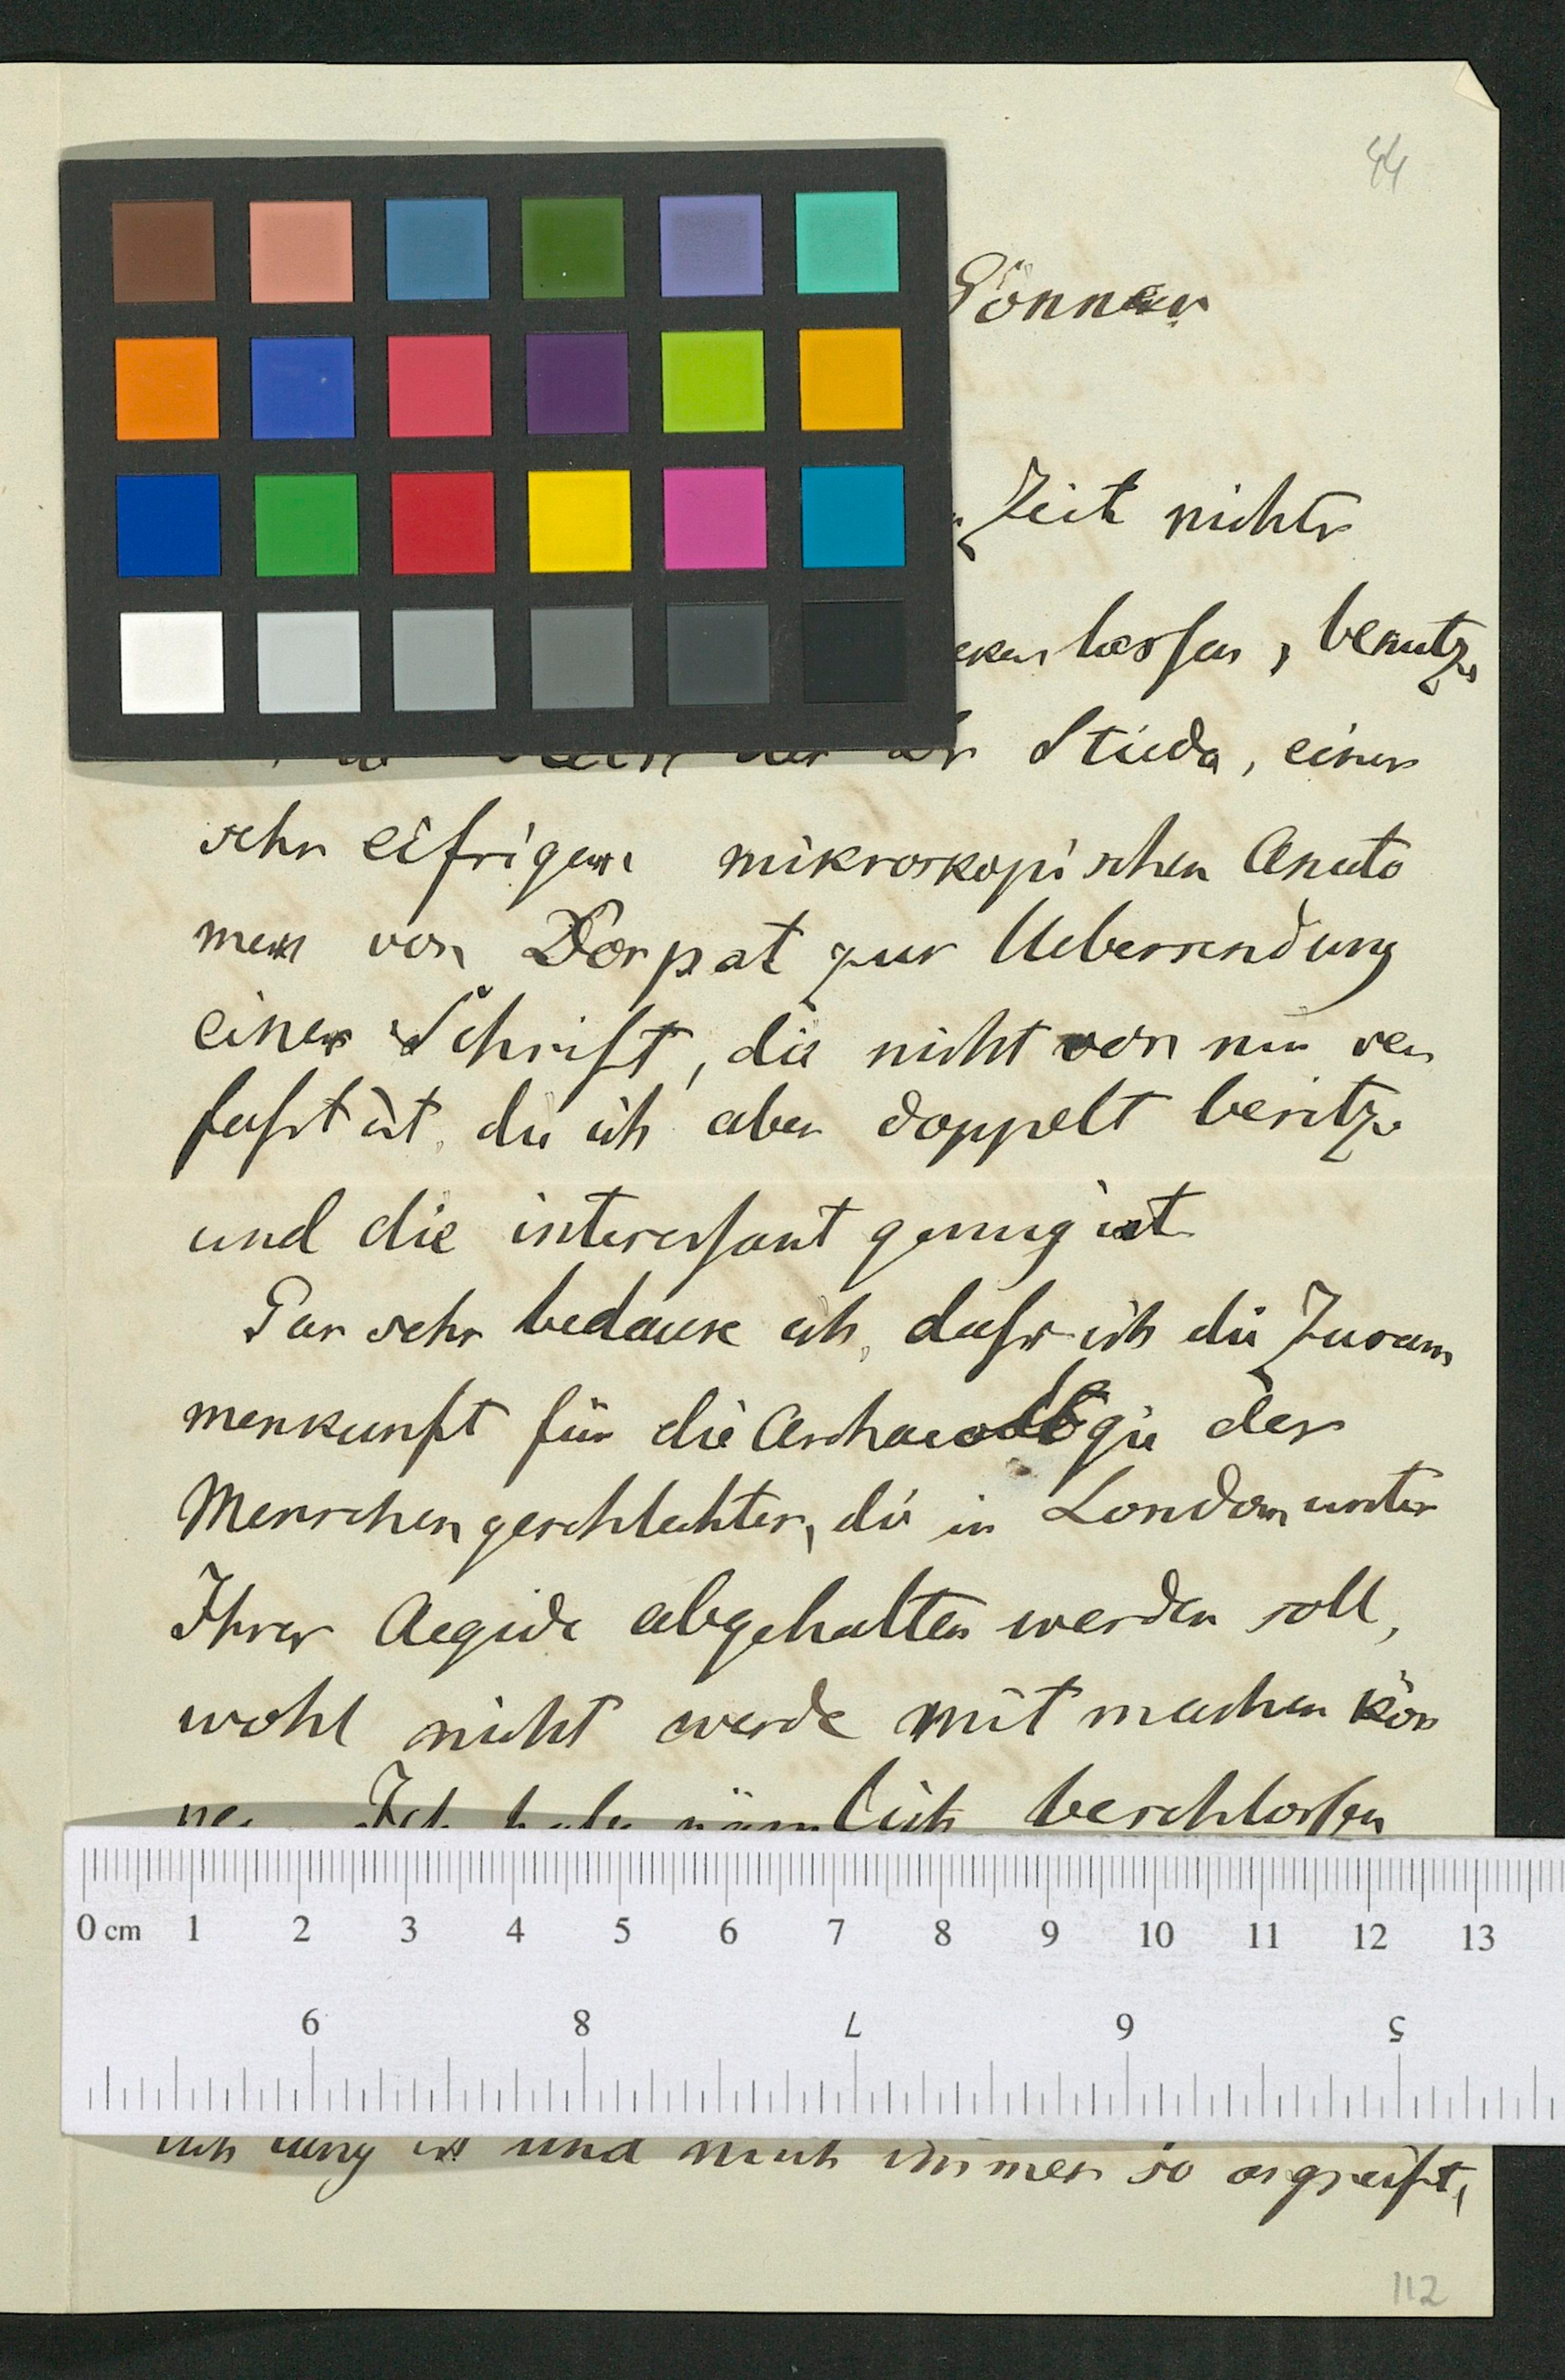 44
Gönner
Zeit nichts
lassen, benutze
Stieda, eines
sehr eifrigen mikroskopischen Anato
men von Dorpat zur Uebersendung
einer Schrift, die nicht von mir ver
faßt ist, die ich aber doppelt besitze
und die interessant genug ist
Gar sehr bedaure ich, daß ich die Zusam
menkunft für die Archaeologie des
Menschengeschlechtes, die in London unter
Ihrer Aegide abgehalten werden soll,
wohl nicht werde mit machen kön
nen Ich habe nämlich beschlossen
0 cm 1 2 3 4 5 6 7 8 9 10 11 12 13
9 8 7 6 5
lang ist und mich immer so angreift,
112